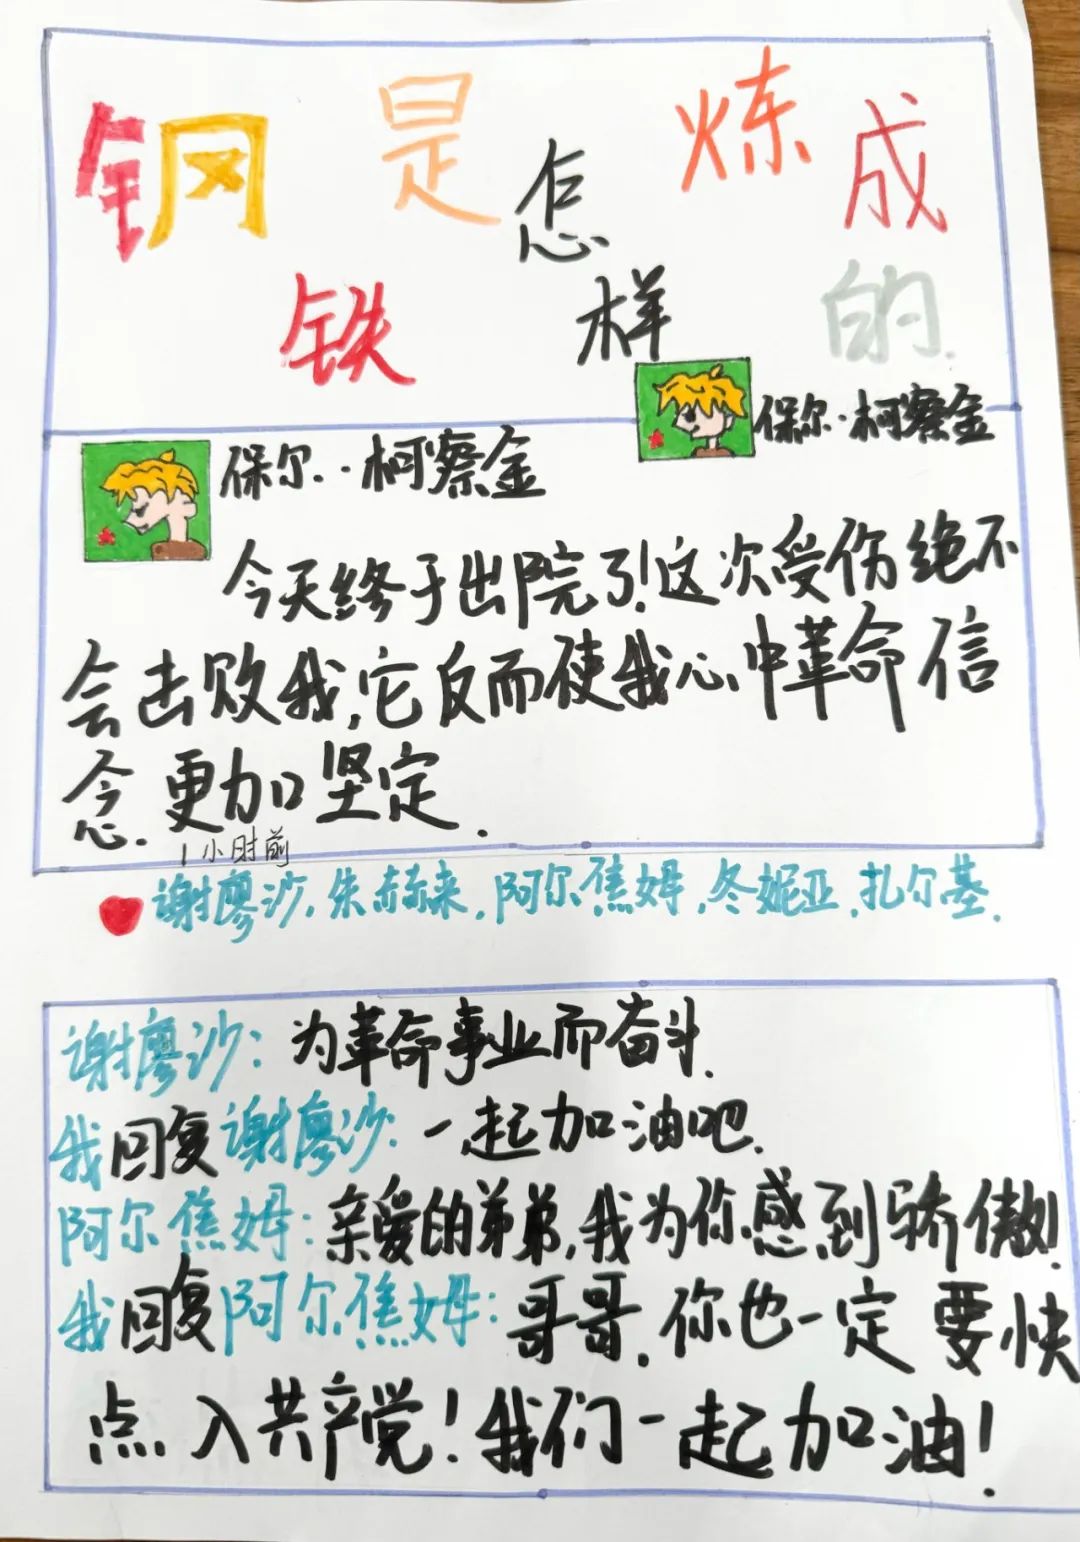 钢铁是怎样炼成的.
保尔·柯察金
保尔·柯察金
今天终于出院了!这次受伤绝不
会击败我,它反而使我心中革命信
念.更加坚定.
1小时前
谢廖沙,朱赫来,阿尔焦姆,冬妮亚,扎尔基.
谢廖沙:为革命事业而奋斗.
我回复谢廖沙:一起加油吧.
阿尔焦姆:亲爱的弟弟,我为你感到骄傲!
我回复阿尔焦姆:哥哥.你也一定要快
点入共产党!我们一起加油!